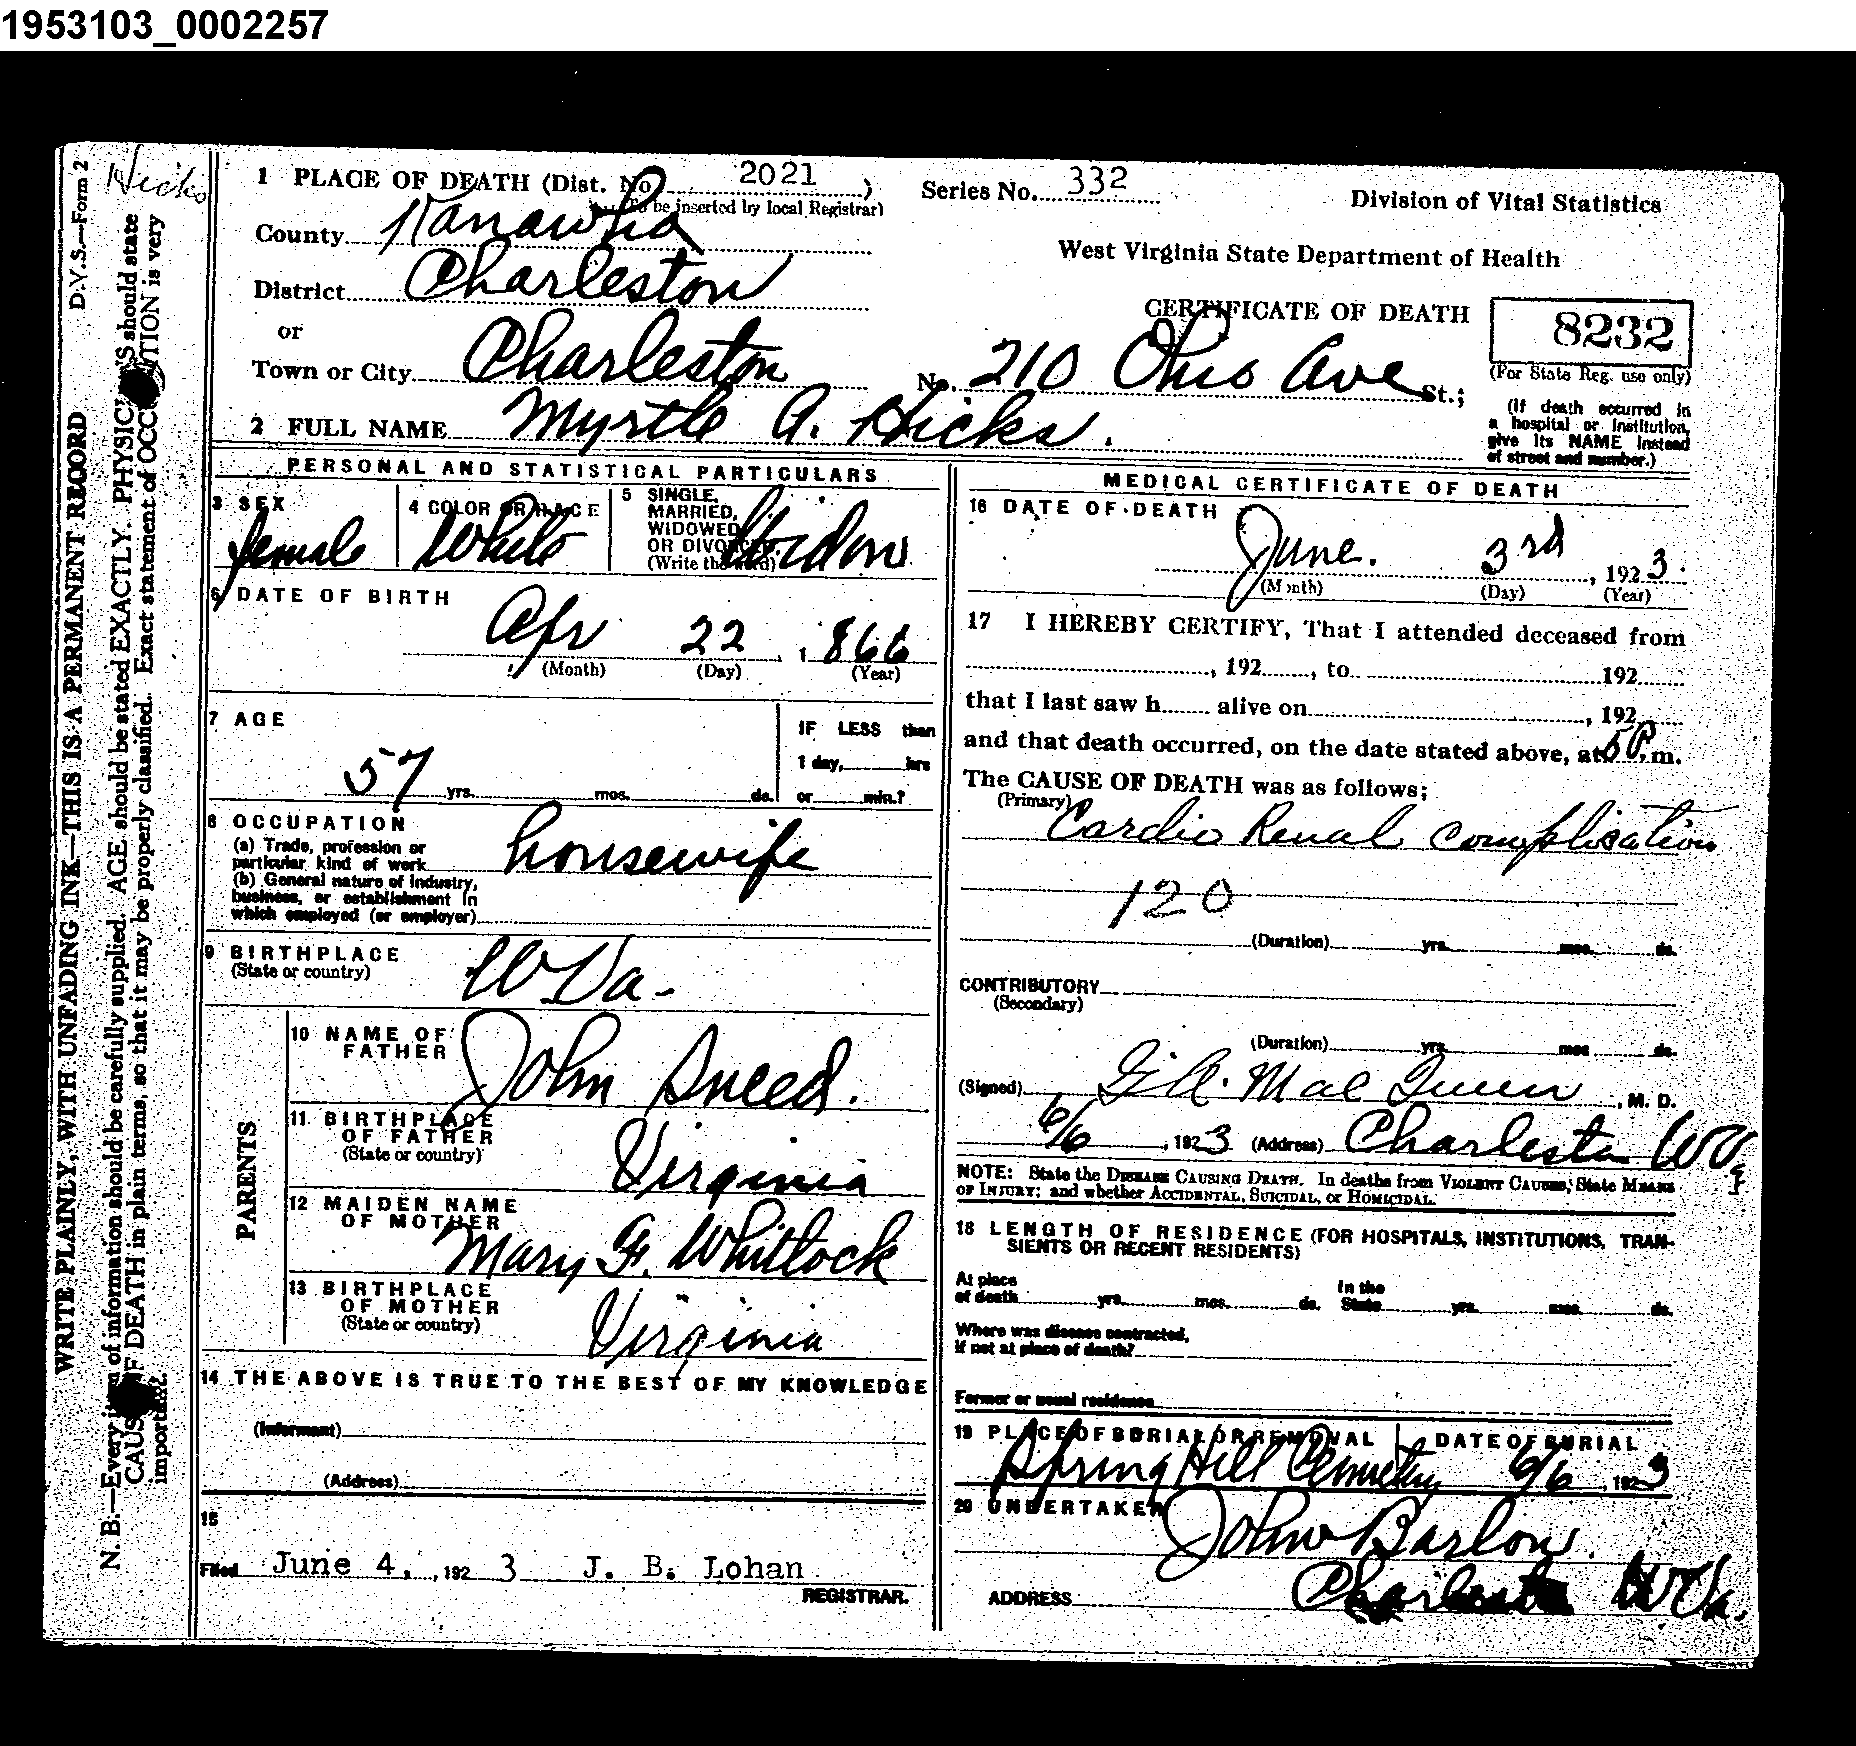 1953103_0002257
Hicks
D.V.S.—Form 2
WRITE PLAINLY, WITH UNFADING INK—THIS IS A PERMANENT RECORD
N. B.—Every item of information should be carefully supplied. AGE should be stated EXACTLY. PHYSICIANS should state
CAUSE OF DEATH in plain terms, so that it may be properly classified. Exact statement of OCCUPATION is very
important.
1 PLACE OF DEATH (Dist. No. 2021 )
(To be inserted by local Registrar)
Series No. 332
Division of Vital Statistics
County Kanawha
West Virginia State Department of Health
District Charleston
CERTIFICATE OF DEATH
8232
(For State Reg. use only)
or
Town or City Charleston No. 210 Ohio Ave St.;
(If death occurred in
a hospital or institution,
give its NAME instead
of street and number.)
2 FULL NAME Myrtle A. Hicks.
PERSONAL AND STATISTICAL PARTICULARS
3 SEX
female
4 COLOR OR RACE
White
5 SINGLE,
MARRIED,
WIDOWED
OR DIVORCED.
(Write the word)
Widow
6 DATE OF BIRTH
Apr 22, 1866
(Month) (Day) (Year)
7 AGE
57 yrs. mos. ds.
IF LESS than
1 day, hrs
or min.?
8 OCCUPATION
(a) Trade, profession or
particular kind of work housewife
(b) General nature of Industry,
business, or establishment in
which employed (or employer)
9 BIRTHPLACE
(State or country)
W Va-
PARENTS
10 NAME OF
FATHER
John Sneed.
11 BIRTHPLACE
OF FATHER
(State or country)
Virginia
12 MAIDEN NAME
OF MOTHER
Mary F. Whitlock
13 BIRTHPLACE
OF MOTHER
(State or country)
Virginia
14 THE ABOVE IS TRUE TO THE BEST OF MY KNOWLEDGE
(Informant)
(Address)
15
Filed June 4, , 192 3 J. B. Lohan
REGISTRAR.
MEDICAL CERTIFICATE OF DEATH
16 DATE OF DEATH
June. 3rd , 1923.
(Month) (Day) (Year)
17 I HEREBY CERTIFY, That I attended deceased from
, 192 , to 192
that I last saw h alive on , 192
and that death occurred, on the date stated above, at 5 P. m.
The CAUSE OF DEATH was as follows;
(Primary)
Cardio Renal complication
120
(Duration) yrs. mos. ds.
CONTRIBUTORY
(Secondary)
(Duration) yrs. mos ds.
(Signed) , M. D.
6/6 , 1923 (Address) Charleston WVa
NOTE: State the DISEASE CAUSING DEATH. In deaths from VIOLENT CAUSES, State MEANS
OF INJURY; and whether ACCIDENTAL, SUICIDAL, or HOMICIDAL.
18 LENGTH OF RESIDENCE (FOR HOSPITALS, INSTITUTIONS, TRAN-
SIENTS OR RECENT RESIDENTS)
At place
of death yrs. mos. ds.
In the
State yrs. mos. ds.
Where was disease contracted,
if not at place of death?
Former or usual residence
19 PLACE OF BURIAL OR REMOVAL
Spring Hill Cemetery
DATE OF BURIAL
6/6 , 1923
20 UNDERTAKER
John Barlow.
ADDRESS Charleston W Va.